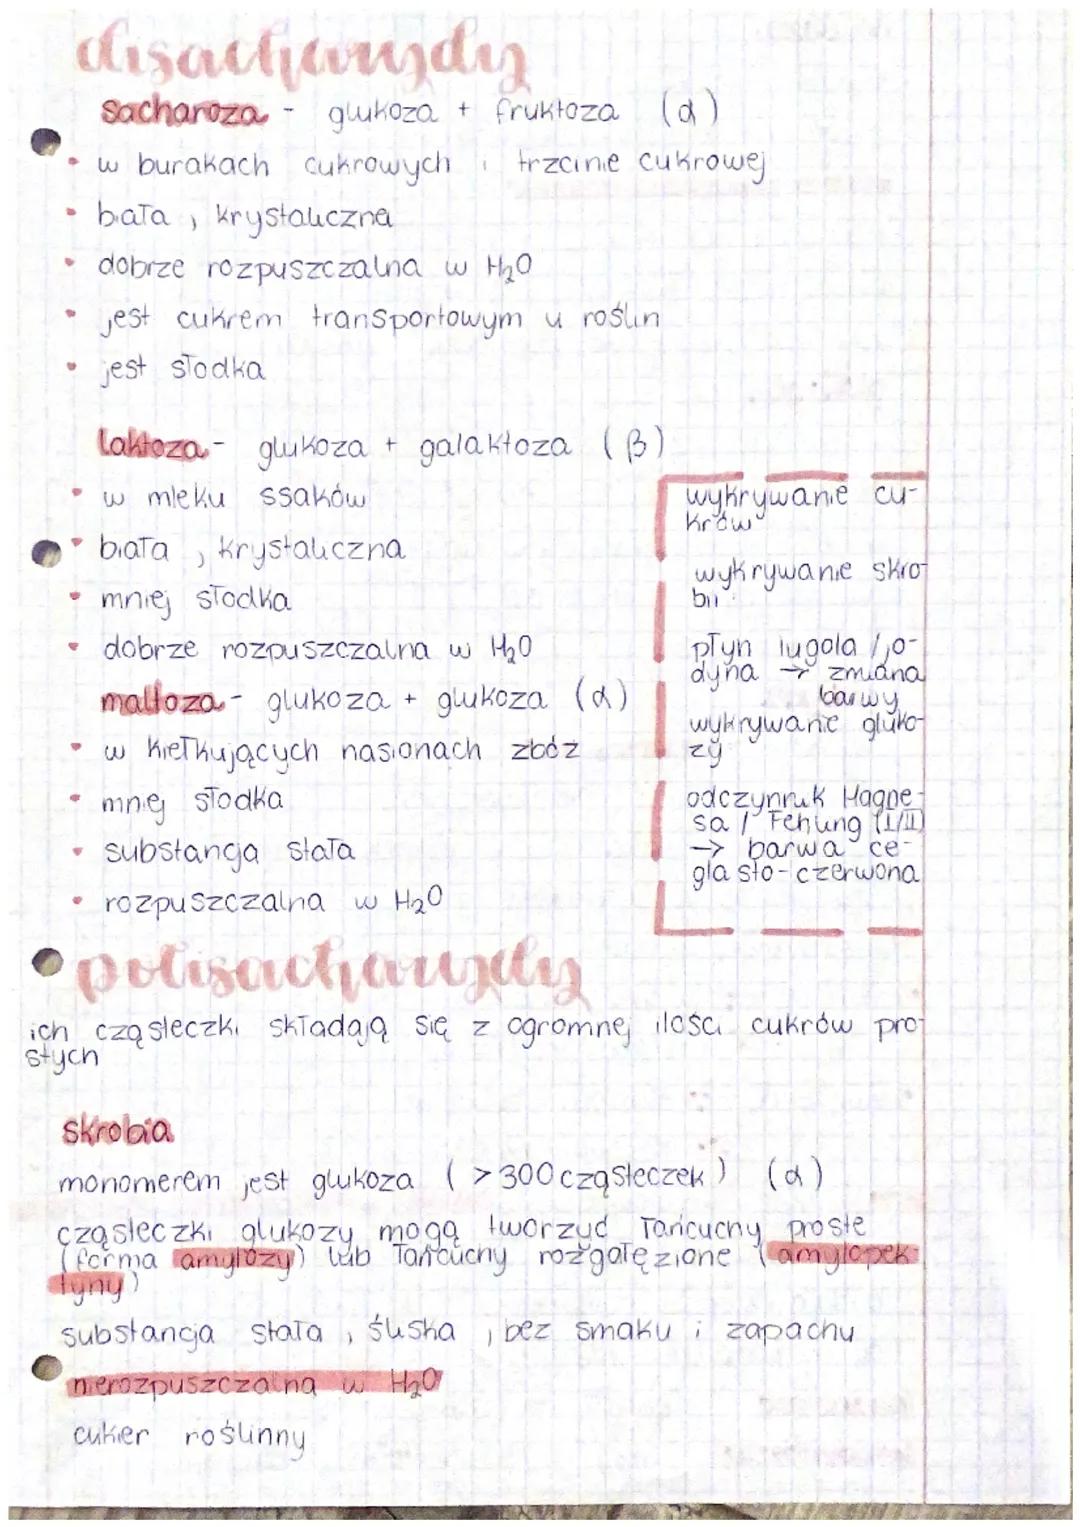 disacharydy
sacharoza - glukoza + fruktoza (α)
• w burakach cukrowych i trzcinie cukrowej
• biała, krystaliczna
• dobrze rozpuszczalna w H₂O
• jest cukrem transportowym u roślin
• jest słodka
laktoza - glukoza + galaktoza (β)
• w mleku ssaków
• biała, krystaliczna
• mniej słodka
• dobrze rozpuszczalna w H₂O
maltoza - glukoza + glukoza (α)
• w kiełkujących nasionach zbóż
• mniej słodka
• substancja stała
• rozpuszczalna w H₂O
wykrywanie cu-
krów
wykrywanie skro-
bii
płyn lugola / jo-
dyna → zmiana
barwy
wykrywanie gluko-
zy
odczynnik Hagne-
sa / Fehling (I/II)
→ barwa ce-
glasto-czerwona
polisacharydy
ich cząsteczki składają się z ogromnej ilości cukrów pro-
stych
skrobia
monomerem jest glukoza (>300 cząsteczek) (α)
cząsteczki glukozy mogą tworzyć łańcuchy proste
(forma amylozy) lub łańcuchy rozgałęzione (amylopek-
tyny)
substancja stała, śliska, bez smaku i zapachu
nierozpuszczalna w H₂O
cukier roślinny